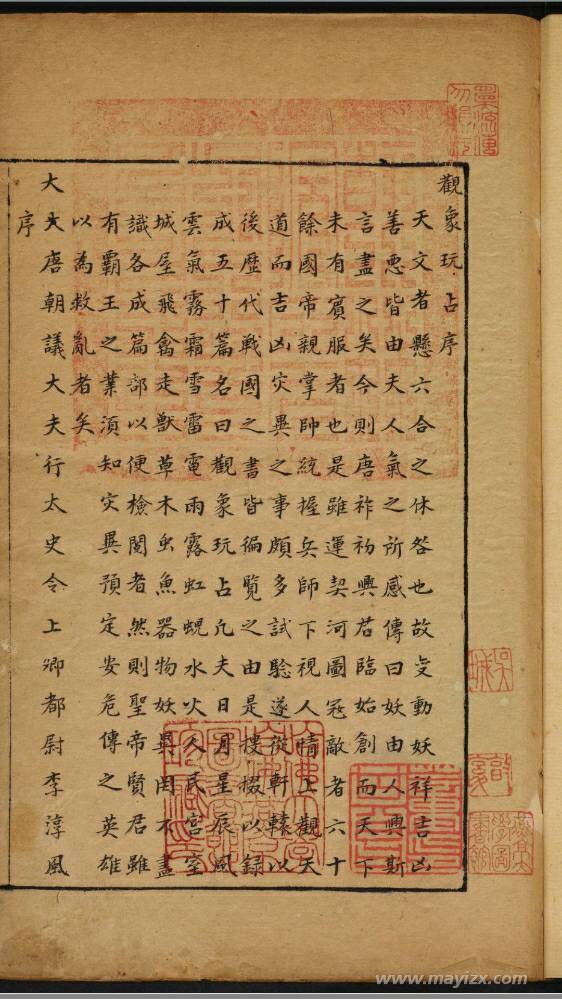 觀象玩占序
天文者懸六合之休咎也故変動妖祥吉凶
善悪皆由夫人氣之所感傳曰妖由人興斯
言盡之矣今則唐祚初興君臨始創而天下
未有賓服者也是雖運契河圖冦敵者六十
餘國帝親掌帥統握兵師下視人情上觀天
道而吉凶灾異之事頗多試驗遂從軒轅以
後歷代戦國之書皆徧覽之由是捜掇以録
成五十篇名曰觀象玩占凢夫日月星辰風
雲氣霧霜雪雷電雨露虹蜺水火人民宫室
城屋飛禽走獸草木虫魚器物妖異罔不盡
識各成篇部以便檢閲者然則聖帝賢君雖
有霸王之業湏知灾異預定安危傳之英雄
以為救亂者矣
大大唐朝議大夫行太史令上卿都尉李淳風
序
www.mayizx.com